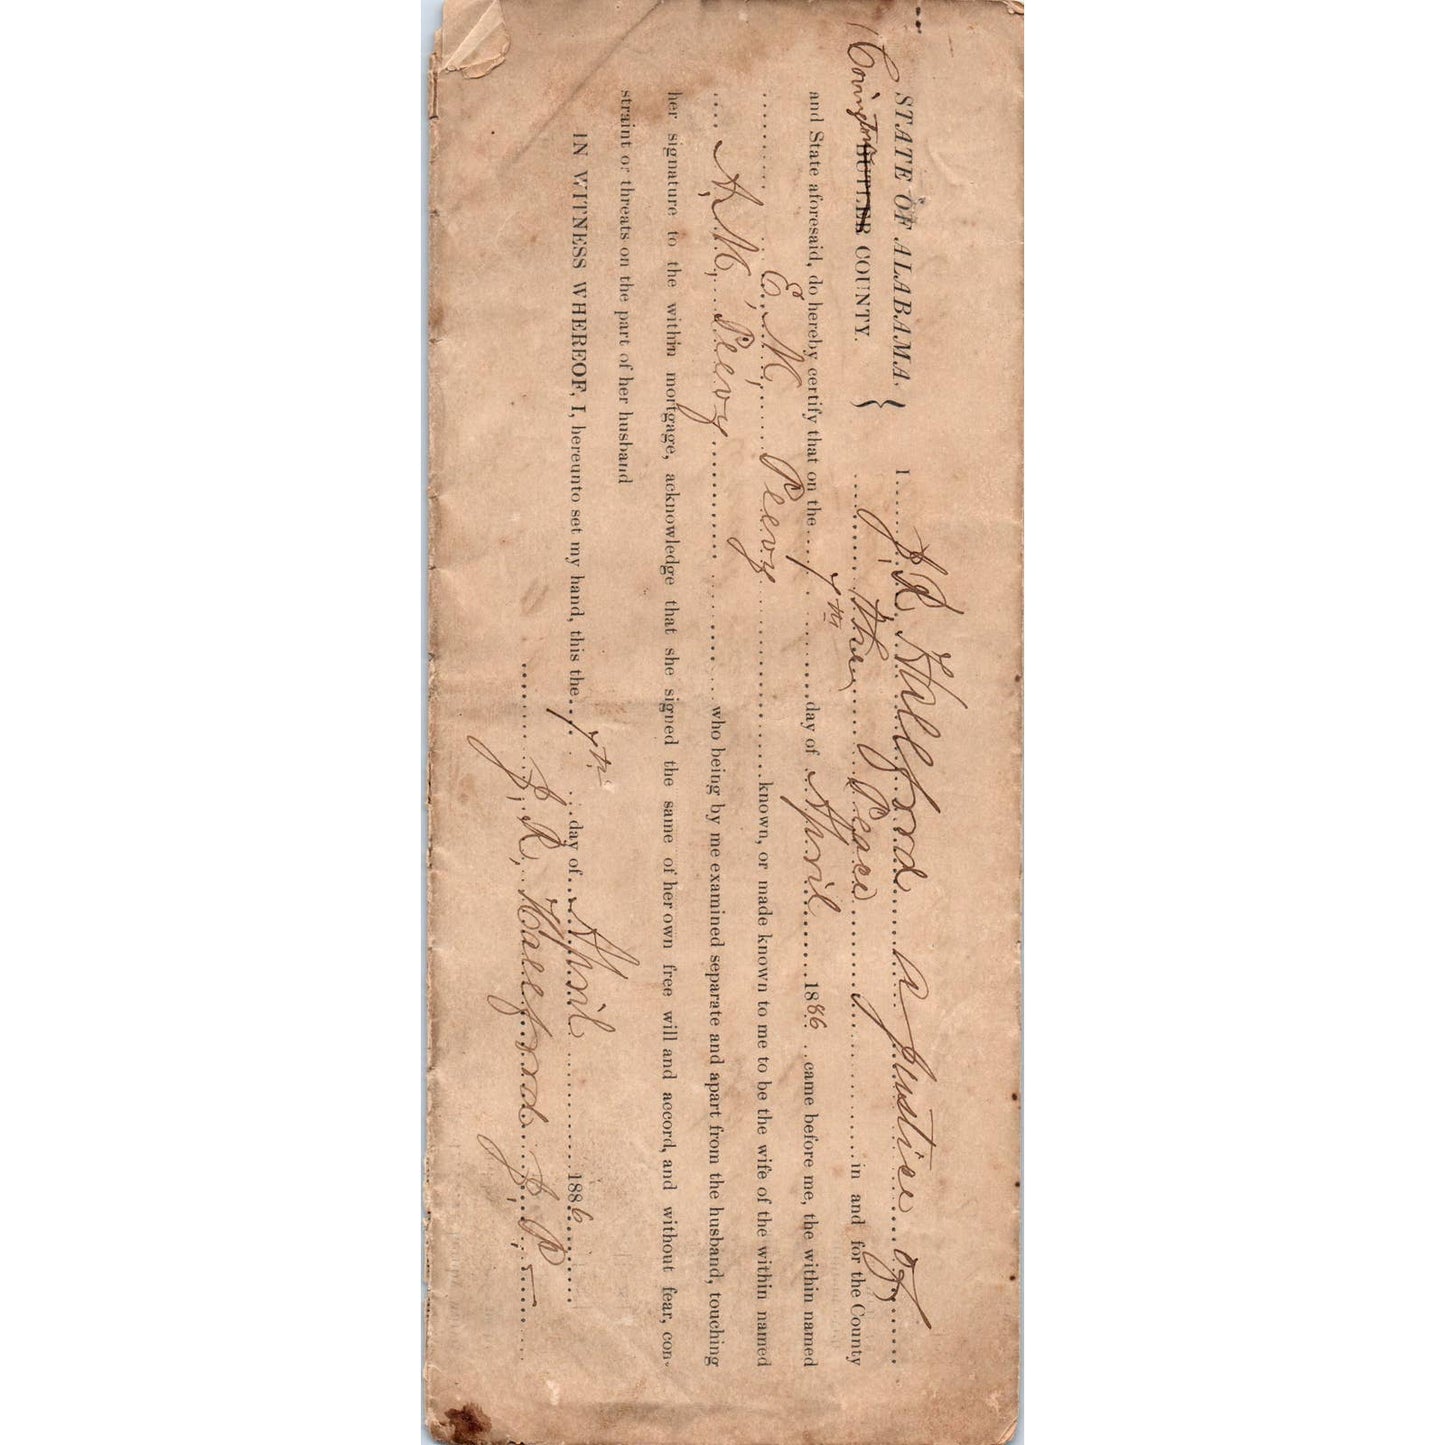 STATE OF ALABAMA. } I J, R, Hallford a Justice of
Covington BUTLER COUNTY. the Peace in and for the County
and State aforesaid, do hereby certify that on the 7th day of April 1886 came before me, the within named
E. M, Peevy known, or made known to me to be the wife of the within named
A, M, Peevy who being by me examined separate and apart from the husband, touching
her signature to the within mortgage, acknowledge that she signed the same of her own free will and accord, and without fear, con-
straint or threats on the part of her husband
IN WITNESS WHEREOF, I, hereunto set my hand, this the 7th day of April 1886
J, R, Hallford J, P,